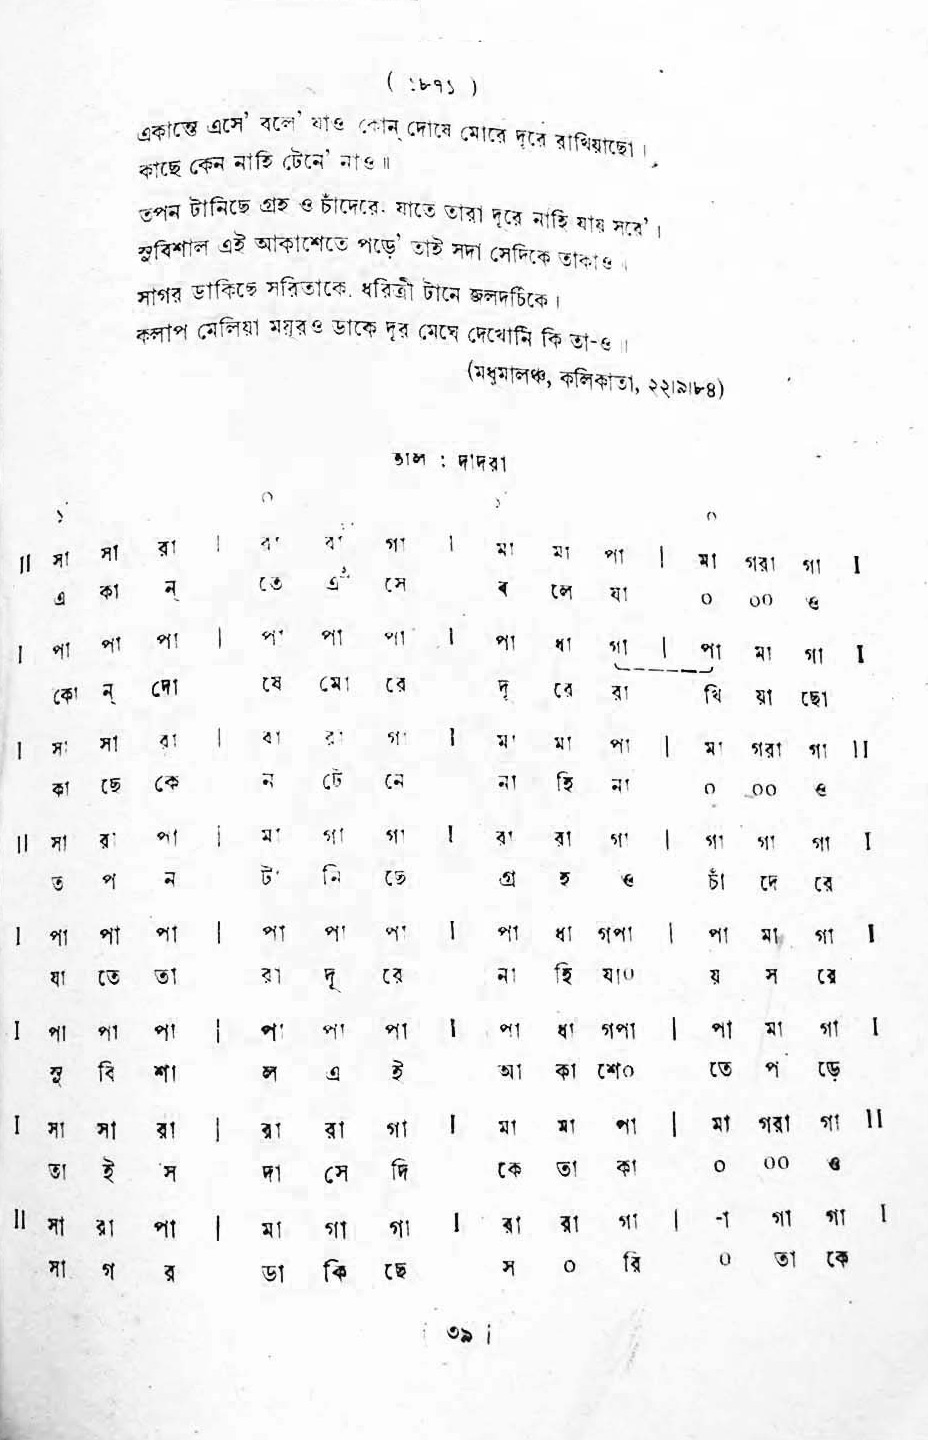 ( ১৮৭১ )
একান্তে এসে' বলে' যাও কোন্ দোষে মোরে দূরে রাখিয়াছো।
কাছে কেন নাহি টেনে' নাও॥
তপন টানিছে গ্রহ ও চাঁদেরে. যাতে তারা দূরে নাহি যায় সরে'।
সুবিশাল এই আকাশেতে পড়ে' তাই সদা সেদিকে তাকাও।
সাগর ডাকিছে সরিতাকে. ধরিত্রী টানে জলদটিকে।
কলাপ মেলিয়া ময়ূরও ডাকে দূর মেঘে দেখোনি কি তা-ও॥
(মধুমালঞ্চ, কলিকাতা, ২২।৯।৮৪)
তাল : দাদরা
১ ০ ১ ০
II সা সা রা | রা রা গা I মা মা পা | মা গরা গা I
এ কা ন্ তে এ সে ব লে যা ০ ০০ ও
I পা পা পা | পা পা পা I পা ধা গা | পা মা গা I
কো ন্ দো ষে মো রে দূ রে রা খি য়া ছো
I সা সা রা | রা রা গা I মা মা পা | মা গরা গা II
কা ছে কে ন টে নে না হি না ০ ০০ ও
II সা রা পা | মা গা গা I রা রা গা | গা গা গা I
ত প ন টা নি ছে গ্র হ ও চাঁ দে রে
I পা পা পা | পা পা পা I পা ধা গপা | পা মা গা I
যা তে তা রা দূ রে না হি যা০ য় স রে
I পা পা পা | পা পা পা I পা ধা গপা | পা মা গা I
সু বি শা ল এ ই আ কা শে০ তে প ড়ে
I সা সা রা | রা রা গা I মা মা পা | মা গরা গা II
তা ই স দা সে দি কে তা কা ০ ০০ ও
II সা রা পা | মা গা গা I রা রা গা | -া গা গা I
সা গ র ডা কি ছে স ০ রি ০ তা কে
| ৩৯ |